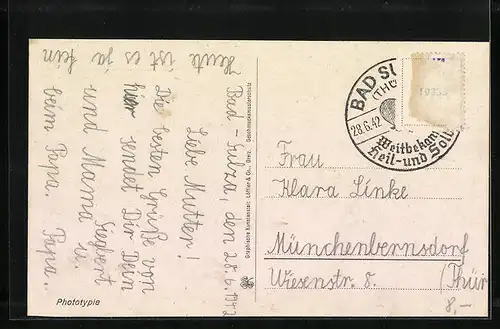 Heute ist es ja fein
Bad-Sulza, den 28.6.1942
Liebe Mutter!
Die besten Grüße von
hier sendet Dir Dein
Siegbert
und Mama u.
beim Papa. Papa..
Phototypie
Graphische Kunstanstalt Löffler & Co., Greiz. Geschmacksmusterschutz
BAD SU
(THÜ
28.6.42
Weltbekan
Heil- und Sol
Frau
Klara Linke
Münchenbernsdorf
Wiesenstr. 8. (Thür
8,-